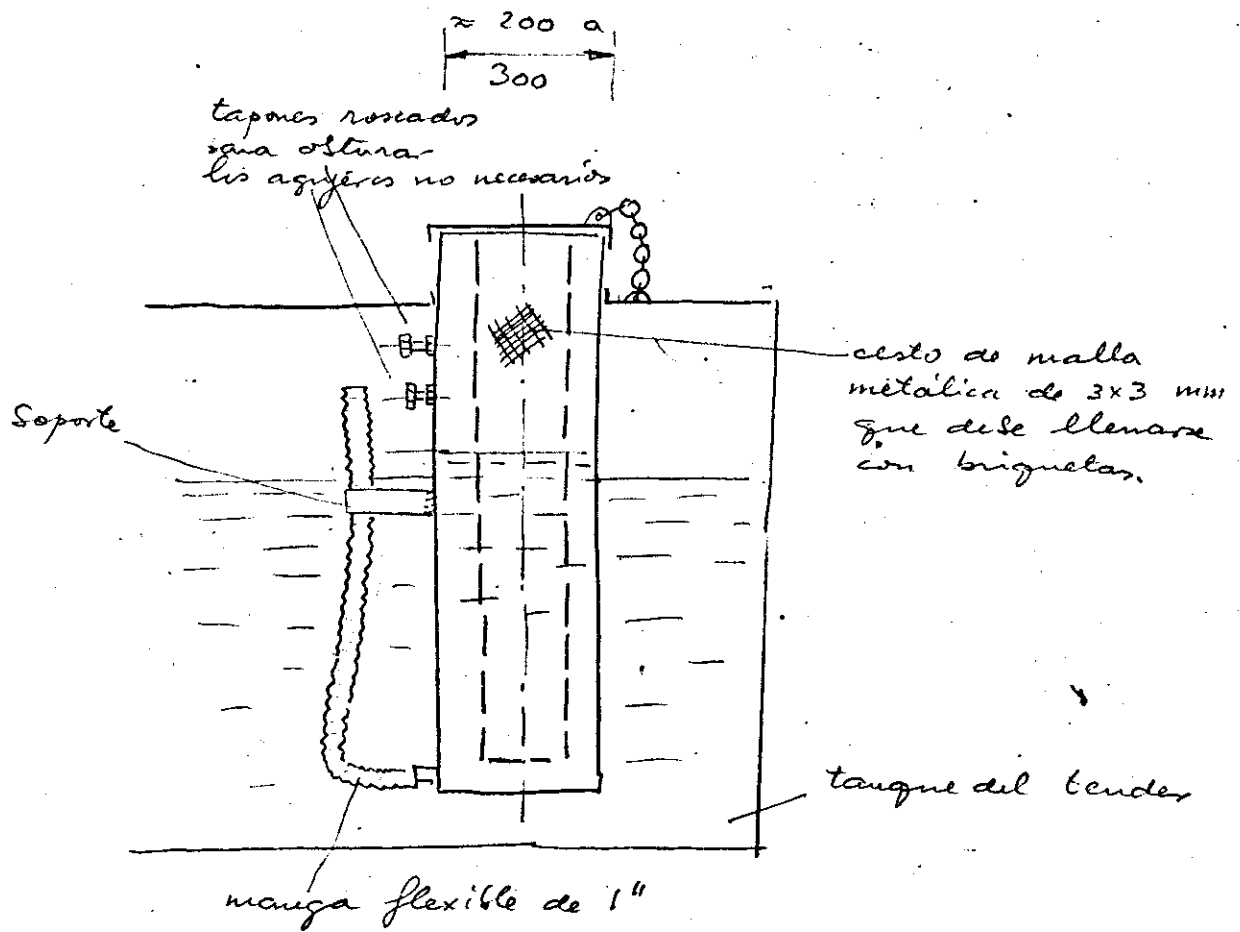 ≈ 200 a
300
tapones roscados
para obturar
los agujeros no necesarios
Soporte
cesto de malla
metálica de 3x3 mm
que debe llenarse
con briquetas.
tanque del tender
manga flexible de 1"